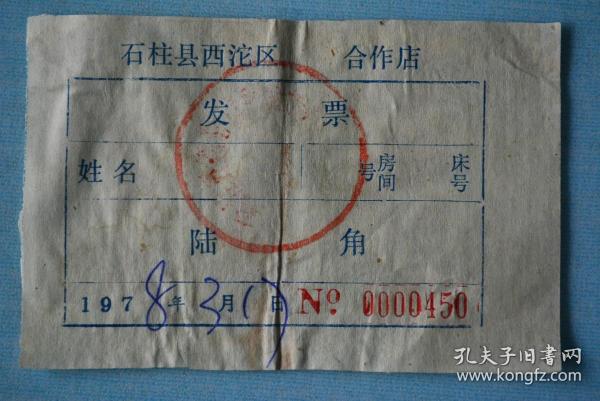 石柱县西沱区 合作店
发 票
姓名 号房间 床号
陆 角
1978年3月 日 Nº 0000450
孔夫子旧书网
www.kongfz.com